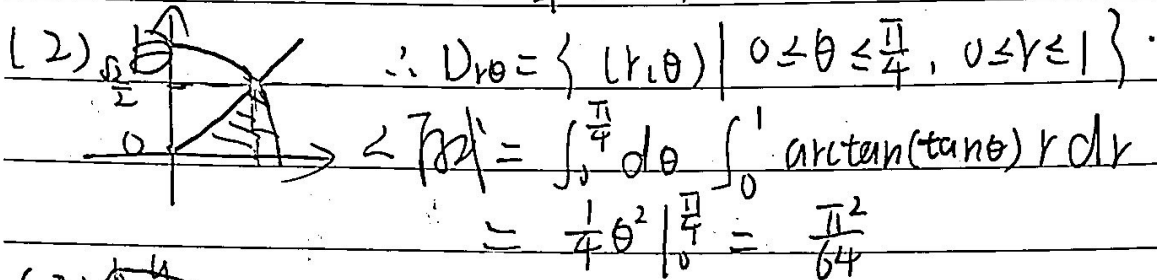 (2) √2/2 0 ∴ D_{rθ} = { (r,θ) | 0 ≤ θ ≤ π/4, 0 ≤ r ≤ 1 } .
原式 = ∫_0^{π/4} dθ ∫_0^1 arctan(tanθ) r dr
= 1/4 θ² |_0^{π/4} = π²/64